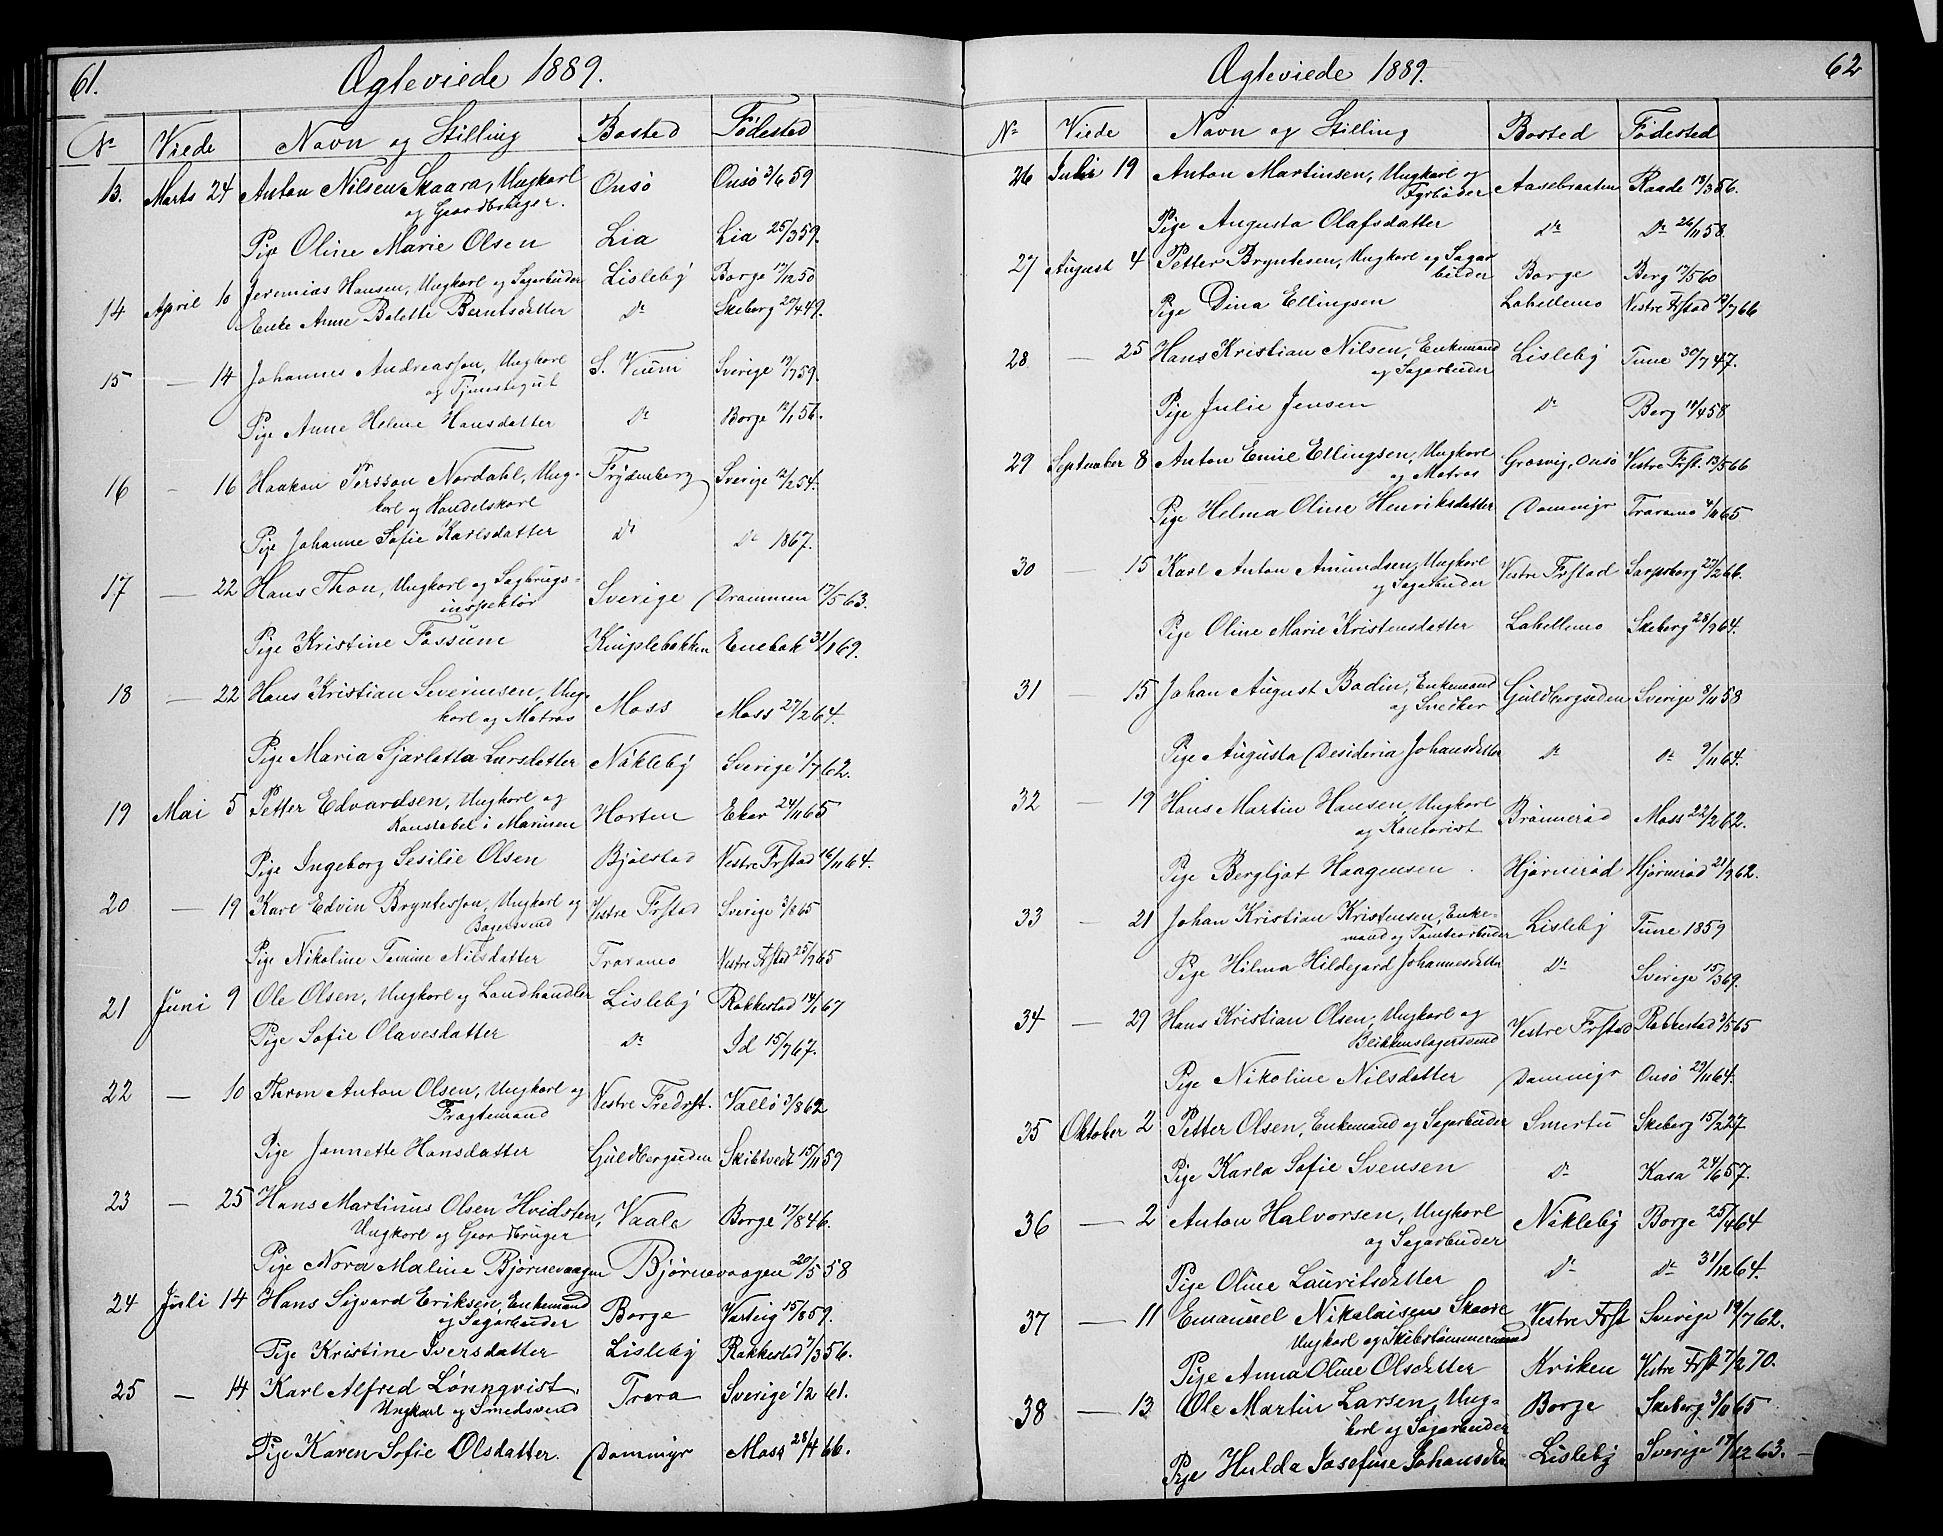 61.
Ægteviede 1889.
Nr Viede Navn og Stilling Bosted Fødested
13. Marts 24 Anton Nilsen Skaara, Ungkarl Onsø Onsø 3/6 59
og Gaardbruger.
Pige Oline Marie Olsen Lia Lia 25/3 59.
14 April 10 Jeremias Hansen, Ungkarl og Sagarbeider Lisleby Borge 12/12 50
Enke Anne Bolette Berntsdatter Dº Skeberg 20/4 49.
15 — 14 Johannes Andreassøn, Ungkarl S. Veum Sverige 13/7 59.
og Tjenestegut
Pige Anne Helene Hansdatter Dº Borge 12/1 56.
16 — 16 Haakan Persson Nordahl, Ung- Frydenberg Sverige 2/2 54.
karl og Handelskarl
Pige Johanne Sofie Karlsdatter Dº Dº 1867.
17 — 22 Hans Thon, Ungkarl og Sagbrugs- Sverige Drammen 17/5 63.
inspektør
Pige Kristine Fossum Kniplebakken Enebak 31/1 69.
18 — 22 Hans Kristian Severinsen, Ung- Moss Moss 27/2 64.
karl og Matros
Pige Maria Sjarlotta Larsdatter Nøkleby Sverige 1/7 62.
19 Mai 5 Petter Edvardsen, Ungkarl og Horten Eker 24/11 65
Konstabel i Marinen
Pige Ingeborg Sesilie Olsen Bjølstad Vestre Frstad 16/11 64.
20 — 19 Karl Edvin Bryntesson, Ungkarl og Vestre Frstad Sverige 3/8 65
Bagersvend
Pige Nikoline Tomine Nilsdatter Traramo Vestre Frstad 25/9 65
21 Juni 9 Ole Olsen, Ungkarl og Landhandler Lisleby Rakkestad 14/1 67
Pige Sofie Olavesdatter Dº Id 15/7 67.
22 — 10 Thron Anton Olsen, Ungkarl og Vestre Fredrst. Vallø 3/8 62
Fragtemand
Pige Jannette Hansdatter Guldbergseden Skibtvedt 15/11 59
23 — 25 Hans Martinus Olsen Hvidsten, Vaale Borge 17/8 46.
Ungkarl og Gaardbruger
Pige Nora Maline Bjørnevaagen Bjørnevaagen 20/5 58
24 Juli 14 Hans Sigvard Eriksen, Enkemand Borge Varteig 15/8 59.
og Sagarbeider
Pige Kristine Iversdatter Lisleby Rakkestad 7/3 56.
25 — 14 Karl Alfred Lønnqvist, Trara Sverige 1/2 61.
Ungkarl og Smedsvend
Pige Karen Sofie Olsdatter. Dammyr Moss 28/4 66.
62
Ægteviede 1889.
Nr Viede Navn og Stilling Bosted Fødested
26 Juli 19 Anton Martinsen, Ungkarl og Aasebraaten Raade 18/3 56.
Fyrbøder
Pige Augusta Olafsdatter Dº Dº 26/11 58.
27 August 4 Petter Bryntesen, Ungkarl og Sagar- Borge Berg 17/5 60
beider
Pige Dina Ellingsen Labellemo Vestre Frstad 12/7 66
28 — 25 Hans Kristian Nilsen, Enkemand Lisleby Tune 30/7 47.
og Sagarbeider
Pige Julie Jensen Dº Berg 18/4 58
29 September 8 Anton Emil Ellingsen, Ungkarl Græsvig, Onsø Vestre Frst. 13/5 66
og Matros
Pige Helma Oline Henriksdatter Dammyr Traramo 4/11 65
30 — 15 Karl Anton Amundsen, Ungkarl Vestre Frstad Sarpsborg 27/2 66.
og Sagarbeider
Pige Oline Marie Kristensdatter Labellemo Skeberg 28/9 64.
31 — 15 Johan August Bodin, Enkemand Guldbergseden Sverige 8/11 58
og Snedker
Pige Augusta Desideria Johansdatter Dº Dº 9/11 64.
32 — 19 Hans Martin Hansen, Ungkarl Brønnerød Moss 22/2 62.
og Kontorist
Pige Bergljot Haagensen Hjørnerød Hjørnerød 21/9 62.
33 — 21 Johan Kristian Kristensen, Enke- Lisleby Tune 1859
mand og Tomtearbeider
Pige Hilma Hildegard Johannesdatter Dº Sverige 15/3 69.
34 — 29 Hans Kristian Olsen, Ungkarl og Vestre Frstad Rakkestad 3/5 65
Blikkenslagersvend
Pige Nikoline Nilsdatter Dammyr Onsø 29/11 64.
35 Oktober 2 Petter Olsen, Enkemand og Sagarbeider Smertu Skeberg 15/2 27
Pige Karla Sofie Svensen Dº Kasa 24/6 57.
36 — 2 Anton Halvorsen, Ungkarl Nøkleby Borge 25/4 64
og Sagarbeider
Pige Oline Lauritsdatter Dº Dº 31/12 64.
37 — 11 Emanuel Nikolaisen Skaare Vestre Frst Sverige 19/7 62.
Ungkarl og Skibstømmermand
Pige Anna Oline Olsdatter Kriken Vestre Frst 7/2 70.
38 — 13 Ole Martin Larsen, Ung- Borge Skeberg 3/11 65
karl og Sagarbeider
Pige Hulda Josefine Johansdtr Lisleby Sverige 17/12 63.